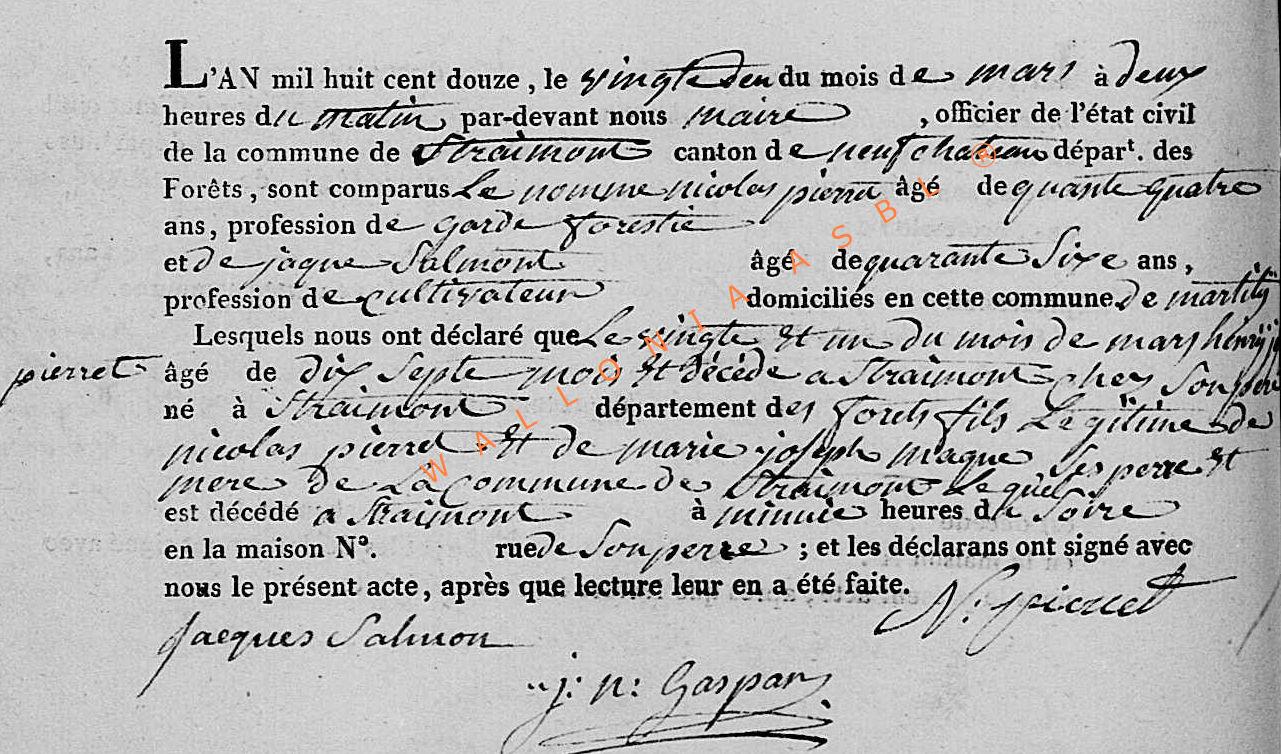 L'AN mil huit cent douze, le vingte deu du mois de mars à deux
heures du matin par-devant nous maire , officier de l'état civil
de la commune de Straimont canton de neufchateau départ. des
Forêts, sont comparus Le nomme nicolas pierret âgé de quante quatre
ans, profession de garde forestie
et de jaque Salmont âgé de quarante Sixe ans,
profession de cultivateur domiciliés en cette commune de
Lesquels nous ont déclaré que Le vingte Et un du mois de mars
pierret âgé de dix Septe mois Et décéde a Straimont chez Son pere
né à Straimont département des forets fils Legitime de
nicolas pierret Et de marie joseph maque Ses perre et
mere de La Commune de Straimont Lequel
est décédé a Straimont à minuie heures du Soire
en la maison Nº. rue de Son perre ; et les déclarans ont signé avec
nous le présent acte, après que lecture leur en a été faite.
N: pierret
Jacques Salmon
j: n: Gaspar
WALLONIA ASBL ®